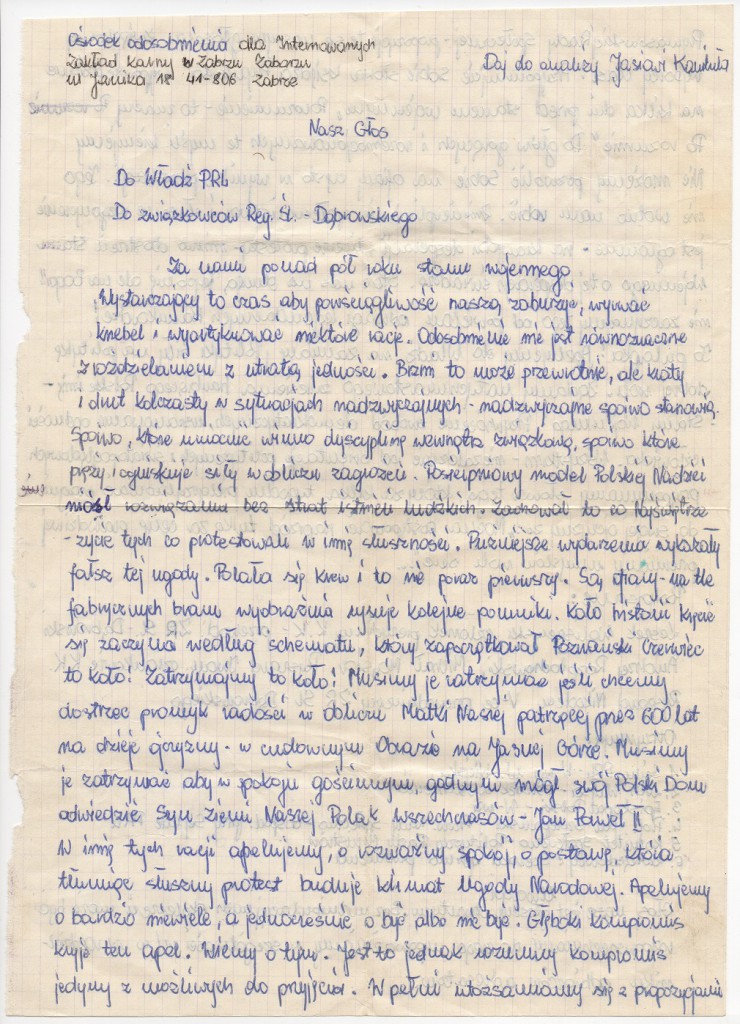 Ośrodek odosobnienia dla Internowanych
Zakład Karny w Zabrzu Zaborzu
ul Janika 18 41-806 Zabrze
Daj do analizy Jasiowi
Nasz Głos
Do Władz PRL
Do związkowców Reg. Śl. - Dąbrowskiego
Za nami ponad pół roku stanu wojennego
Wystarczający to czas aby powściągliwość naszą zaburzyć, wyrwać
knebel i wyartykułować niektóre racje. Odosobnienie nie jest równoznaczne
z rozdzieleniem z utratą jedności. Brzmi to może przewrotnie, ale kraty
i drut kolczasty w sytuacjach nadzwyczajnych - nadzwyczajne spoiwo stanowią.
Spoiwo, które umocnić winno dyscyplinę wewnątrz związkową, spoiwo które
pręży i ogniskuje siły w obliczu zagrożeń. Posierpniowy model Polskiej Nadziei
niósł rozwiązania bez strat istnień ludzkich. Zachował to co Najświętsze
- życie tych co protestowali w imię słuszności. Późniejsze wydarzenia wykazały
fałsz tej ugody. Polała się krew i to nie poraz pierwszy. Są ofiary - na tle
fabrycznych bram wyobraźnia rysuje kolejne pomniki. Koło historii kręcić
się zaczyna według schematu, który zapoczątkował Poznański Czerwiec
to koło! Zatrzymajmy to koło! Musimy je zatrzymać jeśli chcemy
dostrzec promyk radości w obliczu Matki Naszej patrzącej przez 600 lat
na dzieje ojczyzny - w cudownym Obrazie na Jasnej Górze. Musimy
je zatrzymać aby w spokoju gościnnym, godnym mógł swój Polski Dom
odwiedzić Syn Ziemi Naszej, Polak wszechczasów - Jan Paweł II
W imię tych racji apelujemy, o rozważny spokój, o postawę, która
tłumiąc słuszny protest buduje klimat Ugody Narodowej. Apelujemy
o bardzo niewiele, a jednocześnie o być albo nie być. Głęboki kompromis
kryje ten apel. Wiemy o tym. Jest to jednak rozumny kompromis
jedyny z możliwych do przyjęcia. W pełni utożsamiamy się z propozycjami